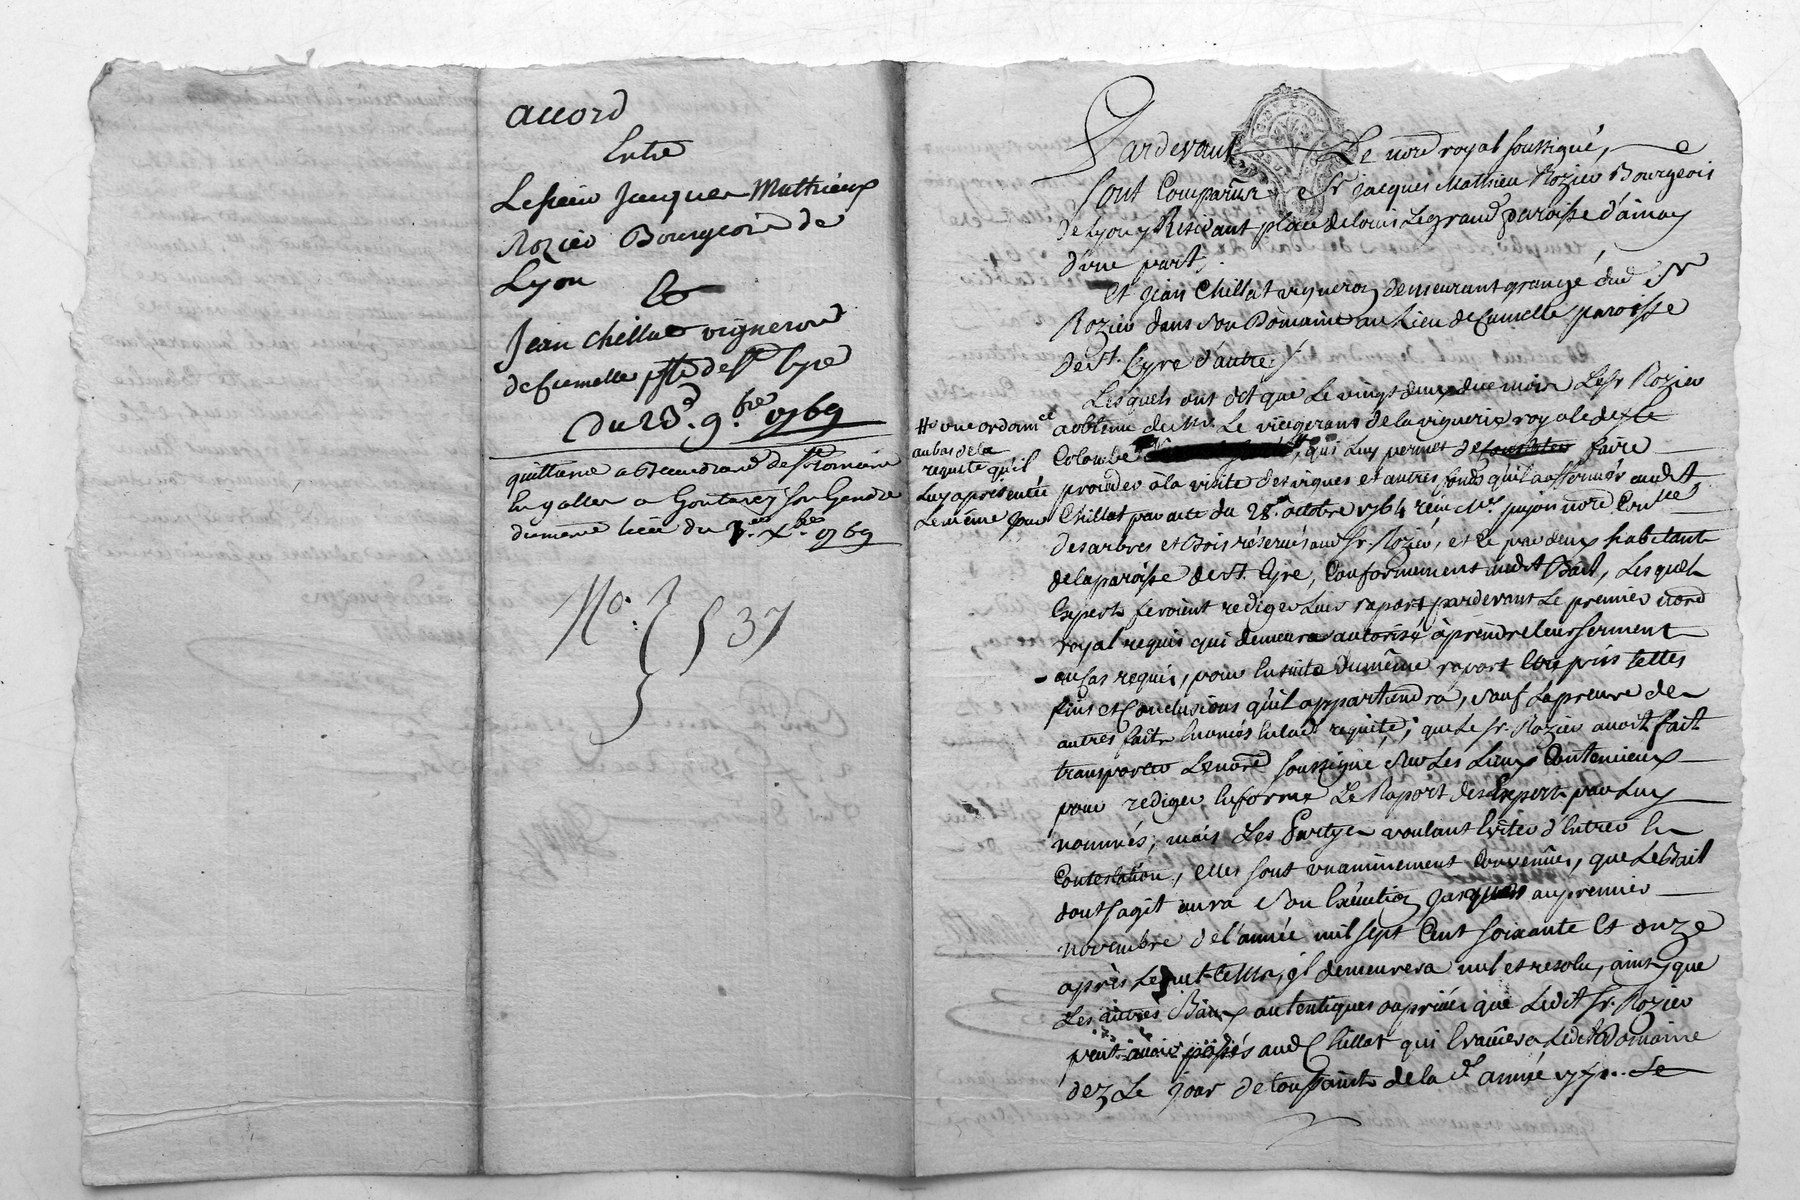 accord
Entre
Le sieur Jacques Mathieux
Rozier Bourgeois de
Lyon
&
Jean Chillat vigneron
de Cumelle psse de st Cyre
Du 23e. 9.bre 1769
quittance a Beaudrand de st Romain
en galler a Goutarey son Gendre
du meme lieu du 3.es X.bre 1769
No. 537
Pardevant Le nore royal soussigné,
sont Comparûs sr. Jacques Mathieu Rozier Bourgeois
de Lyon y Residant place de Louis Le grand paroisse d'ainay
d'une part,
Et Jean Chillat vigneron demeurant grangé dud. sr
Rozier dans son Domaine au Lieu de Cumelle paroisse
de st. Cyre d'autre,
Lesquels ont dit que Le vingt deux du mois Le sr. Rozier
a obtenu de Mr. Le vicegerant de la viguerie royale de ste
Colombe qui Luy permet de faire
proceder à la visite des vignes et autres fonds qu'il a affermés aud.
Chillat par acte du 28. octobre 1764 reçu Me. pujon nore
des arbres et Bois réservés aud sr. Rozier, et ce par deux habitants
de la paroisse de st. Cyre, Conformement audt Bail, Lesquels
Experts feroient rediger Leur raport pardevant Le premier nore
royal requis qui demeure autorisé à prendre leur serment
au Cas requis, pour Ensuite du même raport Etre pris telles
fins et Conclusions qu'il appartiendra, sauf La preuve des
autres faits Enoncés En lad. requête; que Le sr. Rozier avoit fait
transporter Le nore soussigné sur Les Lieux Contencieux
pour rediger En forme Le Raport des Experts par Luy
nommés; mais Les Partyes voulant Eviter d'Entrer En
Contestation, elles sont unanimement Convenües, que Le Bail
dont s'agit aura son Exécution jusques au premier
novembre de l'année mil sept Cent soixante Et onze
après Lequel tems, il demeurera nul et resolu, ainsy que
Les autres Baux autentiques ou privés que Ledit sr. Rozier
peut avoir passés aud Chillat qui Evacüera Ledt Domaine
dez Le jour de toussaints de la de. année 1771. Le
# une ordonnce
au bas de la
requête qu'il
Luy a présentée
Le même jour